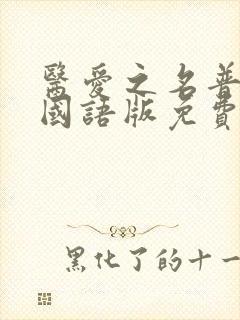 醫愛之名普
國語版免費
黑化了的十一